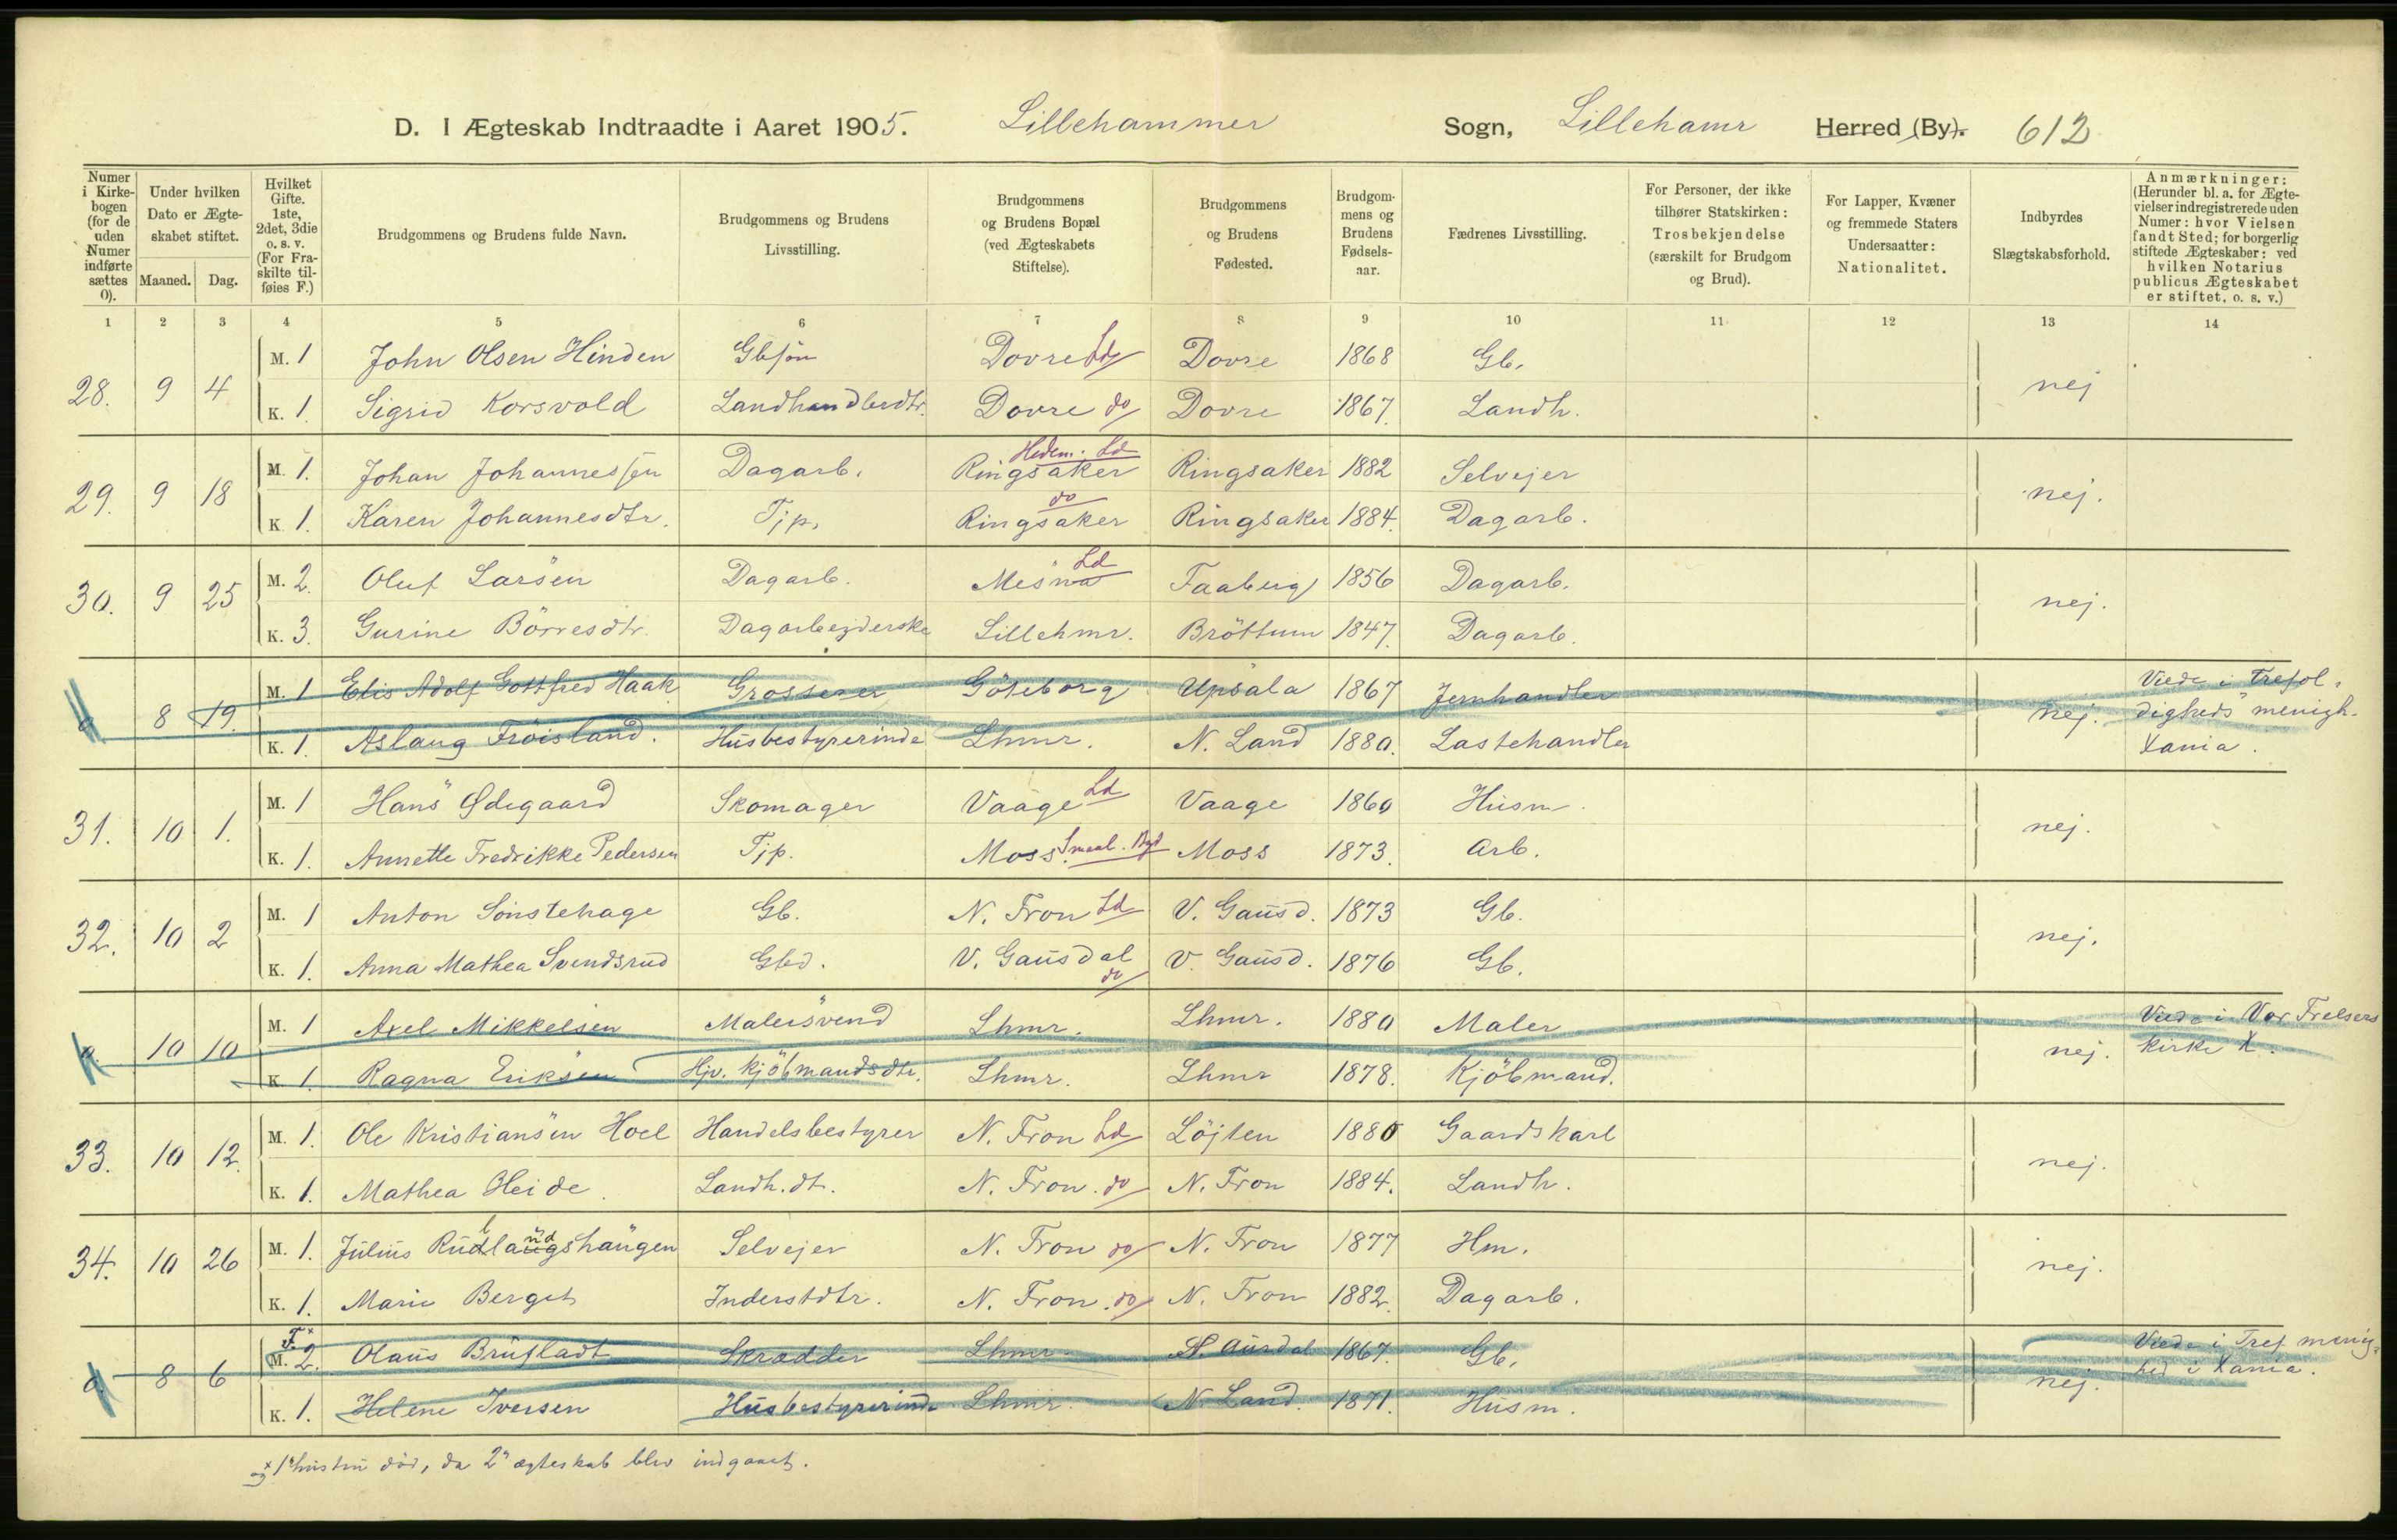 D. I Ægteskab Indtraadte i Aaret 1905. Lillehammer Sogn, Lillehamr Herred (By). 612
Numer i Kirkebogen (for de uden Numer indførte sættes 0). | Under hvilken Dato er Ægteskabet stiftet. Maaned. Dag. | Hvilket Gifte. 1ste, 2det, 3die o. s. v. (For Fraskilte tilføies F.) | Brudgommens og Brudens fulde Navn. | Brudgommens og Brudens Livsstilling. | Brudgommens og Brudens Bopæl (ved Ægteskabets Stiftelse). | Brudgommens og Brudens Fødested. | Brudgommens og Brudens Fødselsaar. | Fædrenes Livsstilling. | For Personer, der ikke tilhører Statskirken: Trosbekjendelse (særskilt for Brudgom og Brud). | For Lapper, Kvæner og fremmede Staters Undersaatter: Nationalitet. | Indbyrdes Slægtskabsforhold. | Anmærkninger: (Herunder bl. a. for Ægtevielser indregistrerede uden Numer: hvor Vielsen fandt Sted; for borgerlig stiftede Ægteskaber: ved hvilken Notarius publicus Ægteskabet er stiftet, o. s. v.)
1 2 3 4 5 6 7 8 9 10 11 12 13 14
28. 9 4 M. 1 John Olsen Hinden Gbsøn Dovre Ld Dovre 1868 Gb. nej
K. 1 Sigrid Korsvold Landhandlerdtr. Dovre do Dovre 1867. Landh.
29. 9 18 M. 1. Johan Johannessen Dagarb. Ringsaker Hedem. Ld Ringsaker 1882 Selvejer nej.
K. 1. Karen Johannesdtr. Tjp. Ringsaker do Ringsaker 1884. Dagarb.
30. 9 25 M. 2. Oluf Larsen Dagarb. Mesna Ld Faaberg 1856 Dagarb. nej.
K. 3. Gurine Börresdtr. Dagarbejderske Lillehmr. Bröttum 1847. Dagarb.
0 8 19. M. 1 Elis Adolf Gottfred Haak Grosserer Göteborg Upsala 1867 Jernhandler nej. Viede i Trefoldigheds menigh. Xania.
K. 1. Aslaug Fröisland. Husbestyrerinde Lhmr. N. Land 1880. Lastehandler
31. 10 1. M. 1 Hans Ødegaard Skomager Vaage Ld Vaage 1860 Husm. nej.
K. 1. Annette Fredrikke Pedersen Tjp. Moss. Smaal. Byd Moss 1873. Arb.
32. 10 2 M. 1 Anton Sönstehage Gb. N. Fron Ld V. Gausd. 1873 Gb. nej.
K. 1. Anna Mathea Svendsrud Gbd. V. Gausdal do V. Gausd. 1876 Gb.
0. 10 10 M. 1 Axel Mikkelsen Malersvend Lhmr. Lhmr. 1880 Maler nej. Viede i Vor Frelsers kirke X.
K. 1. Ragna Eriksen Hjv. kjöbmandsdtr. Lhmr. Lhmr 1878. Kjöbmand.
33. 10 12. M. 1. Ole Kristiansen Hoel Handelsbestyrer N. Fron Ld Löjten 1880 Gaardskarl nej.
K. 1. Mathea Heide. Landh. dt. N. Fron. do N. Fron 1884. Landh.
34. 10 26 M. 1. Julius Rudlandshaugen Selvejer N. Fron do N. Fron 1877 Hm. nej.
K. 1. Marie Berget Inderstdtr. N. Fron. do N. Fron 1882. Dagarb.
0. 8 6 F.x M. 2. Olaus Brufladt Skrædder Lhmr. Aurdal 1867. Gb. nej. Viede i Tref menighed i Xania.
K. 1. Helene Iversen Husbestyrerinde Lhmr. N. Land. 1871. Husm.
x 1e hustru död, da 2et ægteskab blev indgaaet.